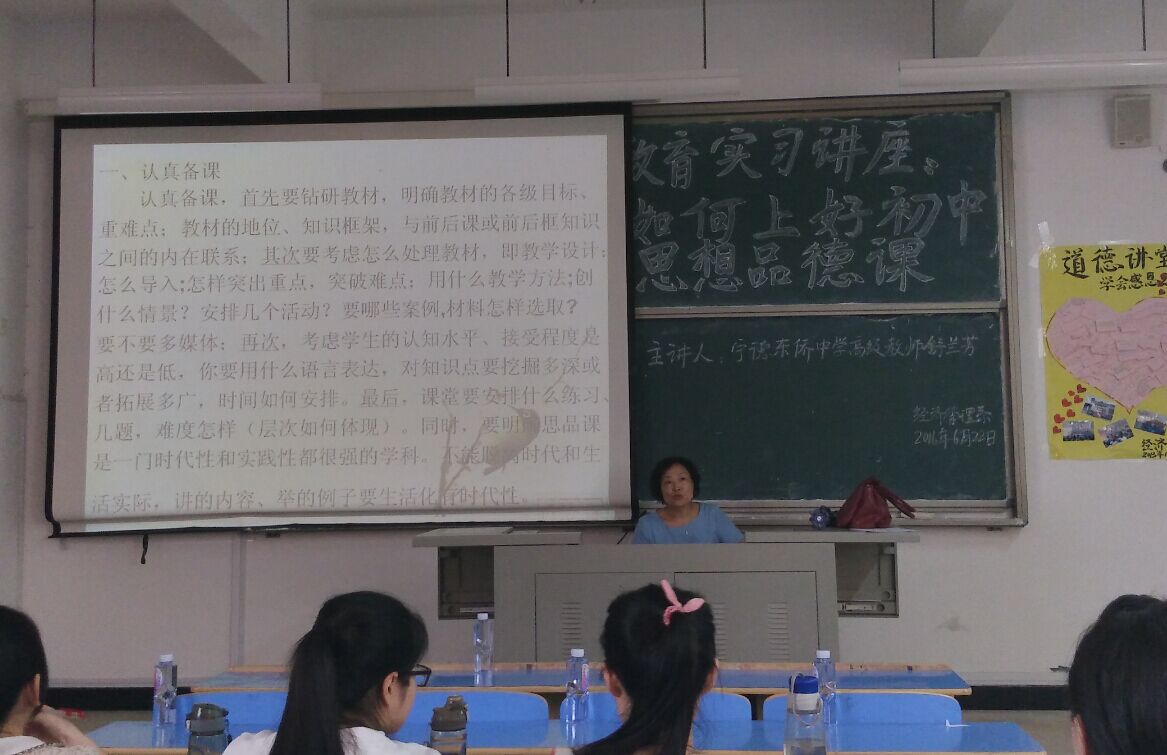 一、认真备课
认真备课，首先要钻研教材，明确教材的各级目标、
重难点；教材的地位、知识框架，与前后课或前后框知识
之间的内在联系；其次要考虑怎么处理教材，即教学设计：
怎么导入;怎样突出重点，突破难点；用什么教学方法;创
什么情景？安排几个活动？要哪些案例,材料怎样选取？
要不要多媒体；再次，考虑学生的认知水平、接受程度是
高还是低，你要用什么语言表达，对知识点要挖掘多深或
者拓展多广，时间如何安排。最后，课堂要安排什么练习、
几题，难度怎样（层次如何体现）。同时，要明确思品课
是一门时代性和实践性都很强的学科。不能脱离时代和生
活实际，讲的内容、举的例子要生活化有时代性。
教育实习讲座：
如何上好初中
思想品德课
主讲人：宁德东侨中学高级教师舒兰芳
经济管理系
2016年6月22日
道德讲堂
学会感恩
经济